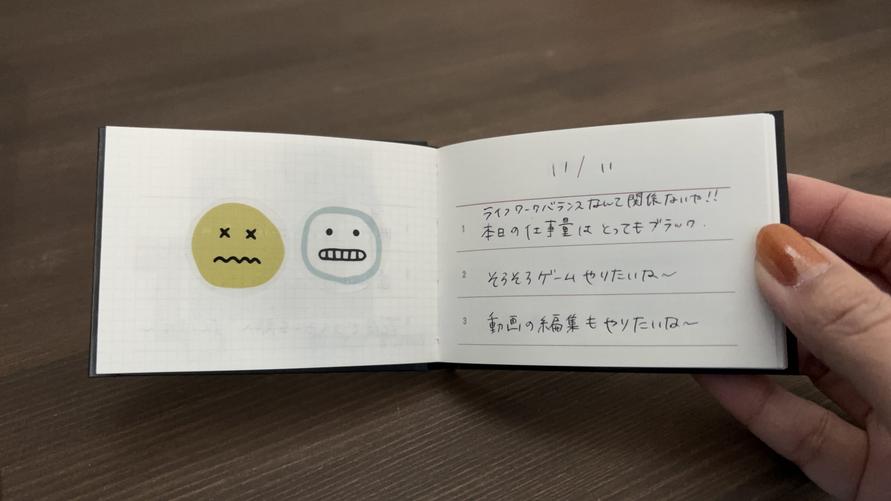 11/11
ライフワークバランスなんて関係ないや!!
1 本日の仕事量はとってもブラック.
2 そろそろゲームやりたいな〜
3 動画の編集もやりたいな〜